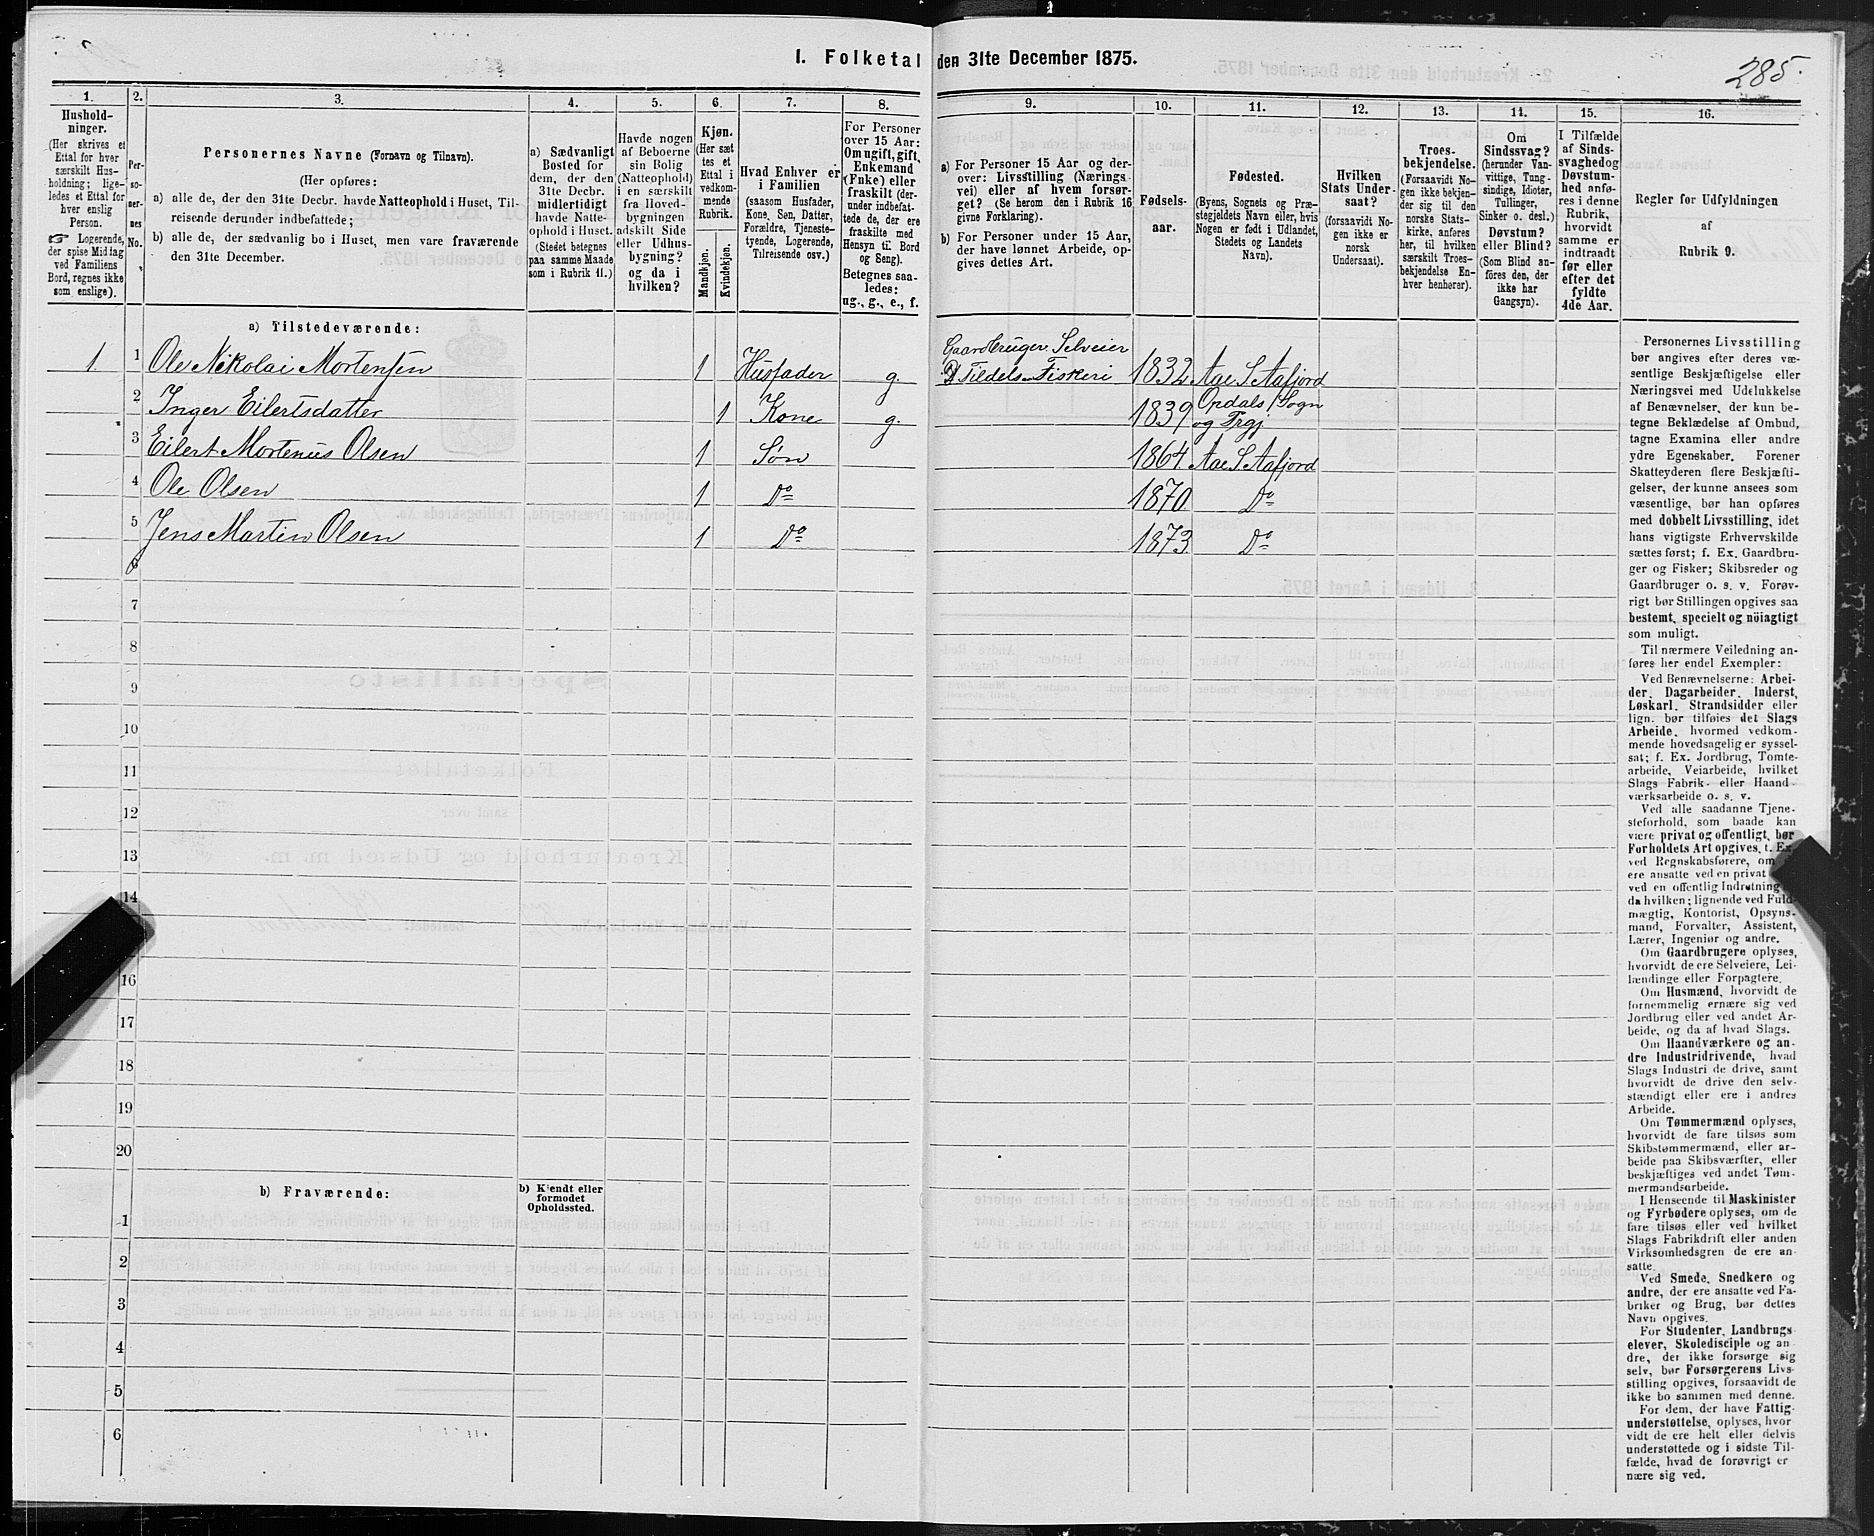 I. Folketal den 31te December 1875.
285.
1.
2.
3.
4.
5.
6.
7.
8.
9.
10.
11.
12.
13.
14.
15.
16.
Hushold-
ninger.
(Her skrives et
Ettal for hver
særskilt Hus-
holdning; lige-
ledes et Ettal for
hver enslig
Person.
☞ Logerende,
der spise Middag
ved Familiens
Bord, regnes ikke
som enslige).
Per-
so-
ner-
nes
No.
Personernes Navne (Fornavn og Tilnavn).
(Her opføres:
a) alle de, der den 31te Decbr. havde Natteophold i Huset, Til-
reisende derunder indbefattede;
b) alle de, der sædvanlig bo i Huset, men vare fraværende
den 31te December.
a) Sædvanligt
Bosted for
dem, der den
31te Decbr.
midlertidigt
havde Natte-
ophold i Huset.
(Stedet betegnes
paa samme Maade
som i Rubrik 11.)
Havde nogen
af Beboerne
sin Bolig
(Natteophold)
i en særskilt
fra Hoved-
bygningen
adskilt Side
eller Udhus-
bygning?
og da i
hvilken?
Kjøn.
(Her sæt
tes et
Ettal i
vedkom-
mende
Rubrik.
Mandkjøn.
Kvindekjøn.
Hvad Enhver er
i Familien
(saasom Husfader,
Kone, Søn, Datter,
Forældre, Tjeneste-
tyende, Logerende,
Tilreisende osv.)
For Personer
over 15 Aar:
Om ugift, gift,
Enkemand
(Enke) eller
fraskilt (der-
under indbefat-
tede de, der ere
fraskilte med
Hensyn til Bord
og Seng).
Betegnes saa-
ledes:
ug., g., e., f.
a) For Personer 15 Aar og der-
over: Livsstilling (Nærings-
vei) eller af hvem forsør-
get? (Se herom den i Rubrik 16
givne Forklaring).
b) For Personer under 15 Aar,
der have lønnet Arbeide, op-
gives dettes Art.
Fødsels-
aar.
Fødested.
(Byens, Sognets og Præ-
stegjeldets Navn eller, hvis
Nogen er født i Udlandet,
Stedets og Landets
Navn).
Hvilken
Stats Under-
saat?
(forsaavidt No-
gen ikke er
norsk
Undersaat).
Troes-
bekjendelse.
(Forsaavidt No-
gen ikke bekjen-
der sig til den
norske Stats-
kirke, anføres
her, til hvilken
særskilt Troes-
bekjendelse En-
hver henhører).
Om
Sindssvag?
(herunder Van-
vittige, Tung-
sindige, Idioter,
Tullinger,
Sinker o. desl.)
Døvstum?
eller Blind?
(Som Blind an-
føres den, der
ikke har
Gangsyn).
I Tilfælde
af Sinds-
svaghed og
Døvstum-
hed anfø-
res i denne
Rubrik,
hvorvidt
samme er
indtraadt
før eller
efter det
fyldte
4de Aar.
Regler for Udfyldningen
af
Rubrik 9.
a) Tilstedeværende:
1. 1 Ole Nikolai Mortensen 1 Husfader g. Gaardbruger. Selveier
Tildels Fiskeri 1832 Aae S. Aafjord
2 Inger Eilertsdatter 1 Kone g. 1839 Opdals Sogn
og Prgj
3 Eilert Mortenus Olsen 1 Søn 1864 Aae S. Aafjord
4 Ole Olsen 1 Do 1870 Do
5 Jens Martin Olsen 1 Do 1873 Do
6
7
8
9
10
11
12
13
14
16
17
18
19
20
b) Fraværende:
b) Kjendt eller
formodet
Opholdssted.
1
2
3
4
5
6
Personernes Livsstilling
bør angives efter deres væ-
sentlige Beskjæftigelse eller
Næringsvei med Udelukkelse
af Benævnelser, der kun be-
tegne Beklædelse af Ombud,
tagne Examina eller andre
ydre Egenskaber. Forener
Skatteyderen flere Beskjæfti-
gelser, der kunne ansees som
væsentlige, bør han opføres
med dobbelt Livsstilling, idet
hans vigtigste Erhvervskilde
sættes først; f. Ex. Gaardbru-
ger og Fisker; Skibsreder og
Gaardbruger o. s. v. Forøv-
rigt bør Stillingen opgives saa
bestemt, specielt og nöiagtigt
som muligt.
Til nærmere Veiledning an-
føres her endel Exempler:
Ved Benævnelserne: Arbei-
der, Dagarbeider, Inderst,
Løskarl, Strandsidder eller
lign. bør tilføies det Slags
Arbeide, hvormed vedkom-
mende hovedsagelig er syssel-
sat; f. Ex. Jordbrug, Tomte-
arbeide, Veiarbeide, hvilket
Slags Fabrik- eller Haand-
værksarbeide o. s. v.
Ved alle saadanne Tjene-
steforhold, som baade kan
være privat og offentligt, bør
Forholdets Art opgives, f. Ex.
ved Regnskabsførere, om
ere ansatte ved en privat
ved en offentlig Indretning
da hvilken; lignende ved Fuld-
mægtig, Kontorist, Opsyns-
mand, Forvalter, Assistent,
Lærer, Ingeniør og andre.
Om Gaardbrugere oplyses,
hvorvidt de ere Selveiere, Lei-
lændinge eller Forpagtere.
Om Husmænd, hvorvidt de
fornemmelig ernære sig ved
Jordbrug eller ved andet Ar-
beide, og da af hvad Slags.
Om Haandværkere og an-
dre Industridrivende, hvad
Slags Industri de drive, samt
hvorvidt de drive den selv-
stændigt eller ere i andres
Arbeide.
Om Tømmermænd oplyses,
hvorvidt de fare tilsøs som
Skibstømmermænd, eller ar-
beide paa Skibsværfter, eller
beskjæftiges ved andet Tøm-
mermandsarbeide.
I Henseende til Maskinister
og Fyrbødere oplyses, om de
fare tilsøs eller ved hvilket
Slags Fabrikdrift eller anden
Virksomhedsgren de ere an-
satte.
Ved Smede, Snedkere og
andre, der ere ansatte ved Fa-
briker og Brug, bør dettes
Navn opgives.
For Studenter, Landbrugs-
elever, Skoledisciple og an-
dre, der ikke forsørge sig
selv, bør Forsørgerens Livs-
stilling opgives, forsaavidt de
ikke bo sammen med denne.
For dem, der have Fattig-
understøttelse, oplyses, hvor-
vidt de ere helt eller delvis
understøttede og i sidste Til-
fælde, hvad de forøvrigt er
nære sig ved.